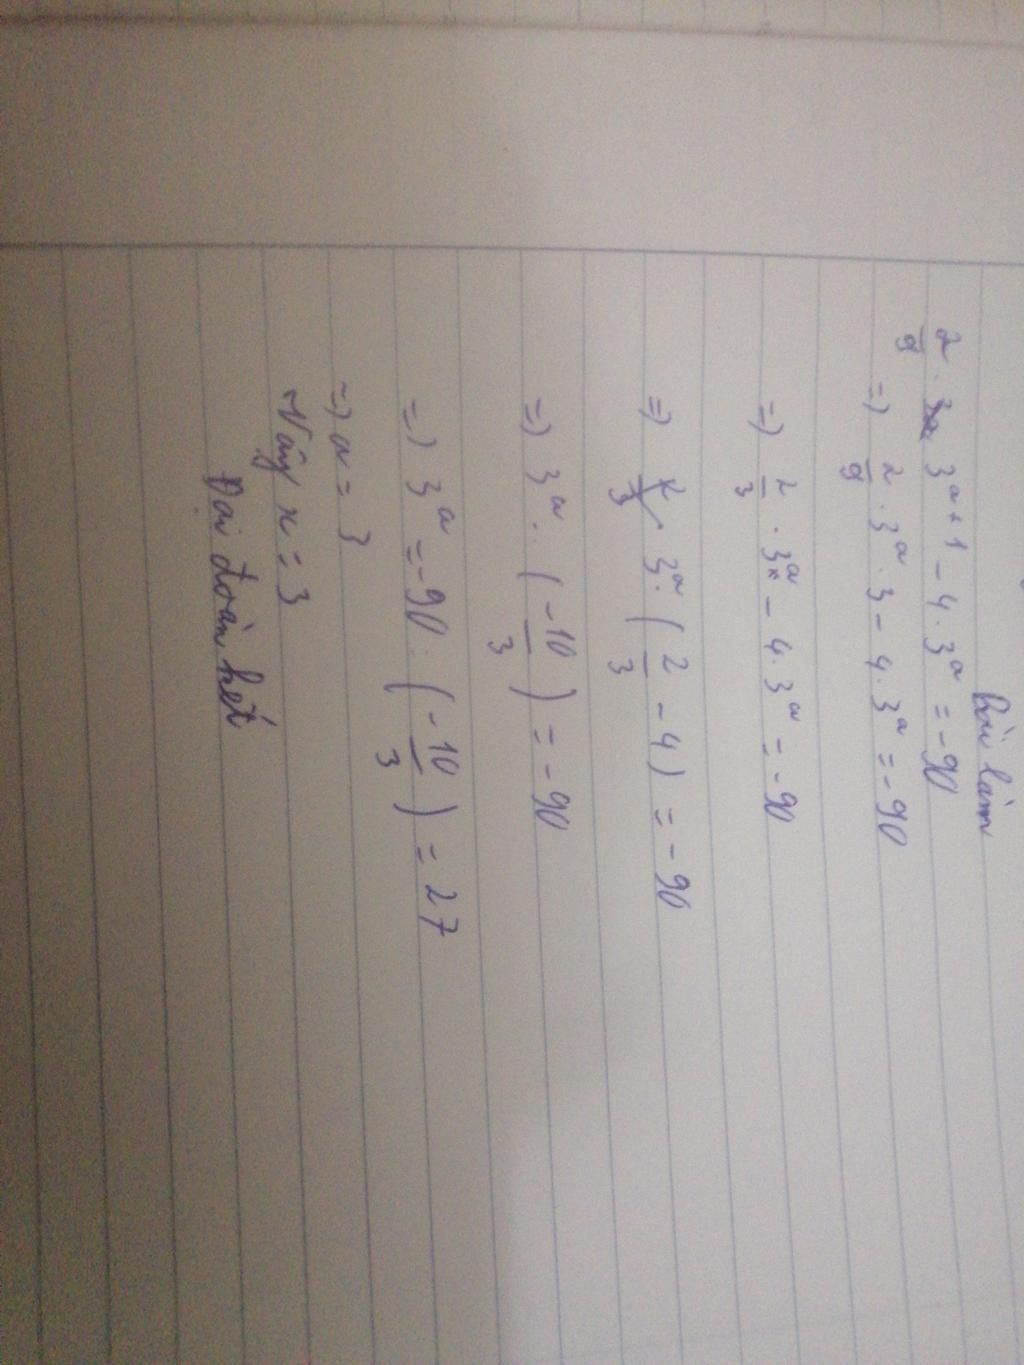 Bài làm
2/9 . 3^{x+1} - 4 . 3^x = -90
=> 2/9 . 3^x . 3 - 4 . 3^x = -90
=> 2/3 . 3^x - 4 . 3^x = -90
=> 3^x . ( 2/3 - 4 ) = -90
=> 3^x . ( -10/3 ) = -90
=> 3^x = -90 : ( -10/3 ) = 27
=> x = 3
Vậy x = 3